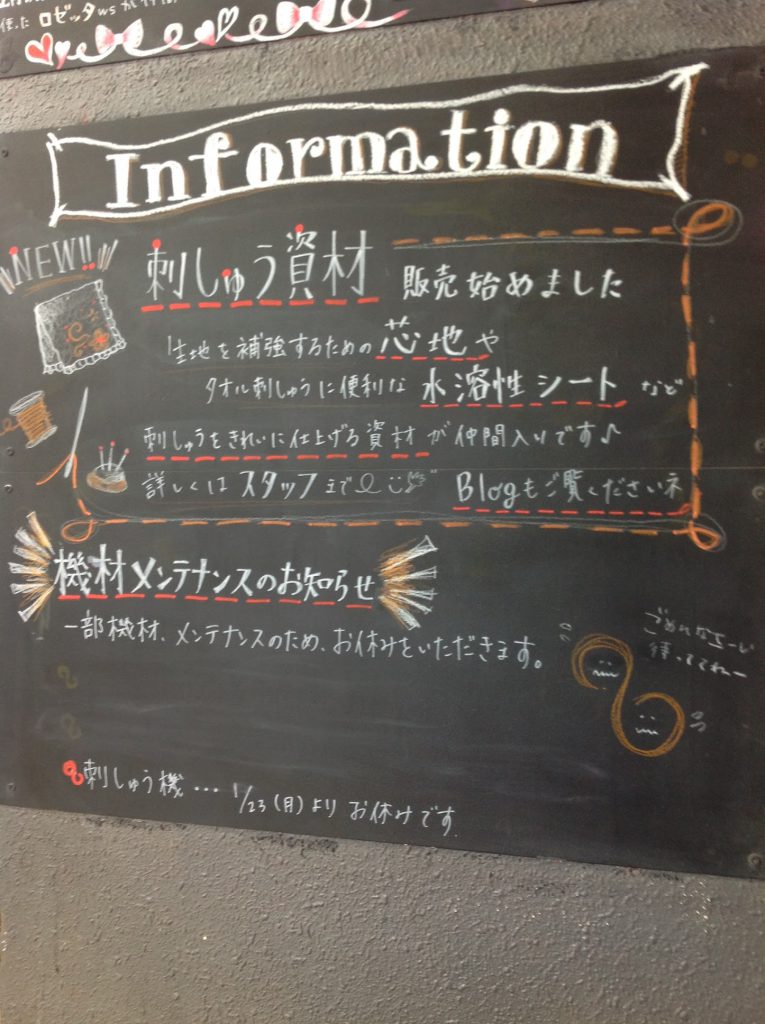 使った ロゼッタ ws が
Information
NEW!!
刺しゅう資材 販売始めました
生地を補強するための芯地や
タオル刺しゅうに便利な 水溶性シート など
刺しゅうをきれいに仕上げる資材 が 仲間入りです♪
詳しくは スタッフまで Blogもご覧くださいネ
機材メンテナンスのお知らせ
一部機材、メンテナンスのため、お休みをいただきます。
ごめんなさーい
待っててねー
刺しゅう機… 1/23(月)より お休みです.